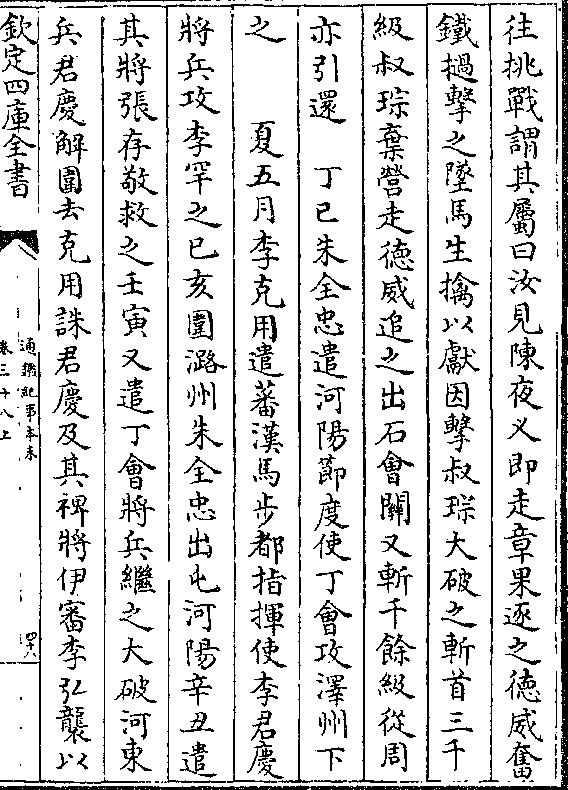 往挑戰謂其屬曰汝見陳夜乂即走章果逐之德威奮
鐵撾擊之墜馬生擒以獻因擊叔琮大破之斬首三千
級叔琮棄營走德威追之出石會關又斬千餘級從周
亦引還　丁已朱全忠遣河陽節度使丁會攻澤州下
之　　夏五月李克用遣蕃漢馬步都指揮使李君慶
將兵攻李罕之已亥圍潞州朱全忠出屯河陽辛丑遣
其將張存敬救之壬寅又遣丁會將兵繼之大破河東
兵君慶解圍去克用誅君慶及其裨將伊審李弘襲以
欽定四庫全書
通鑑紀事本末
卷三十八上
四十八